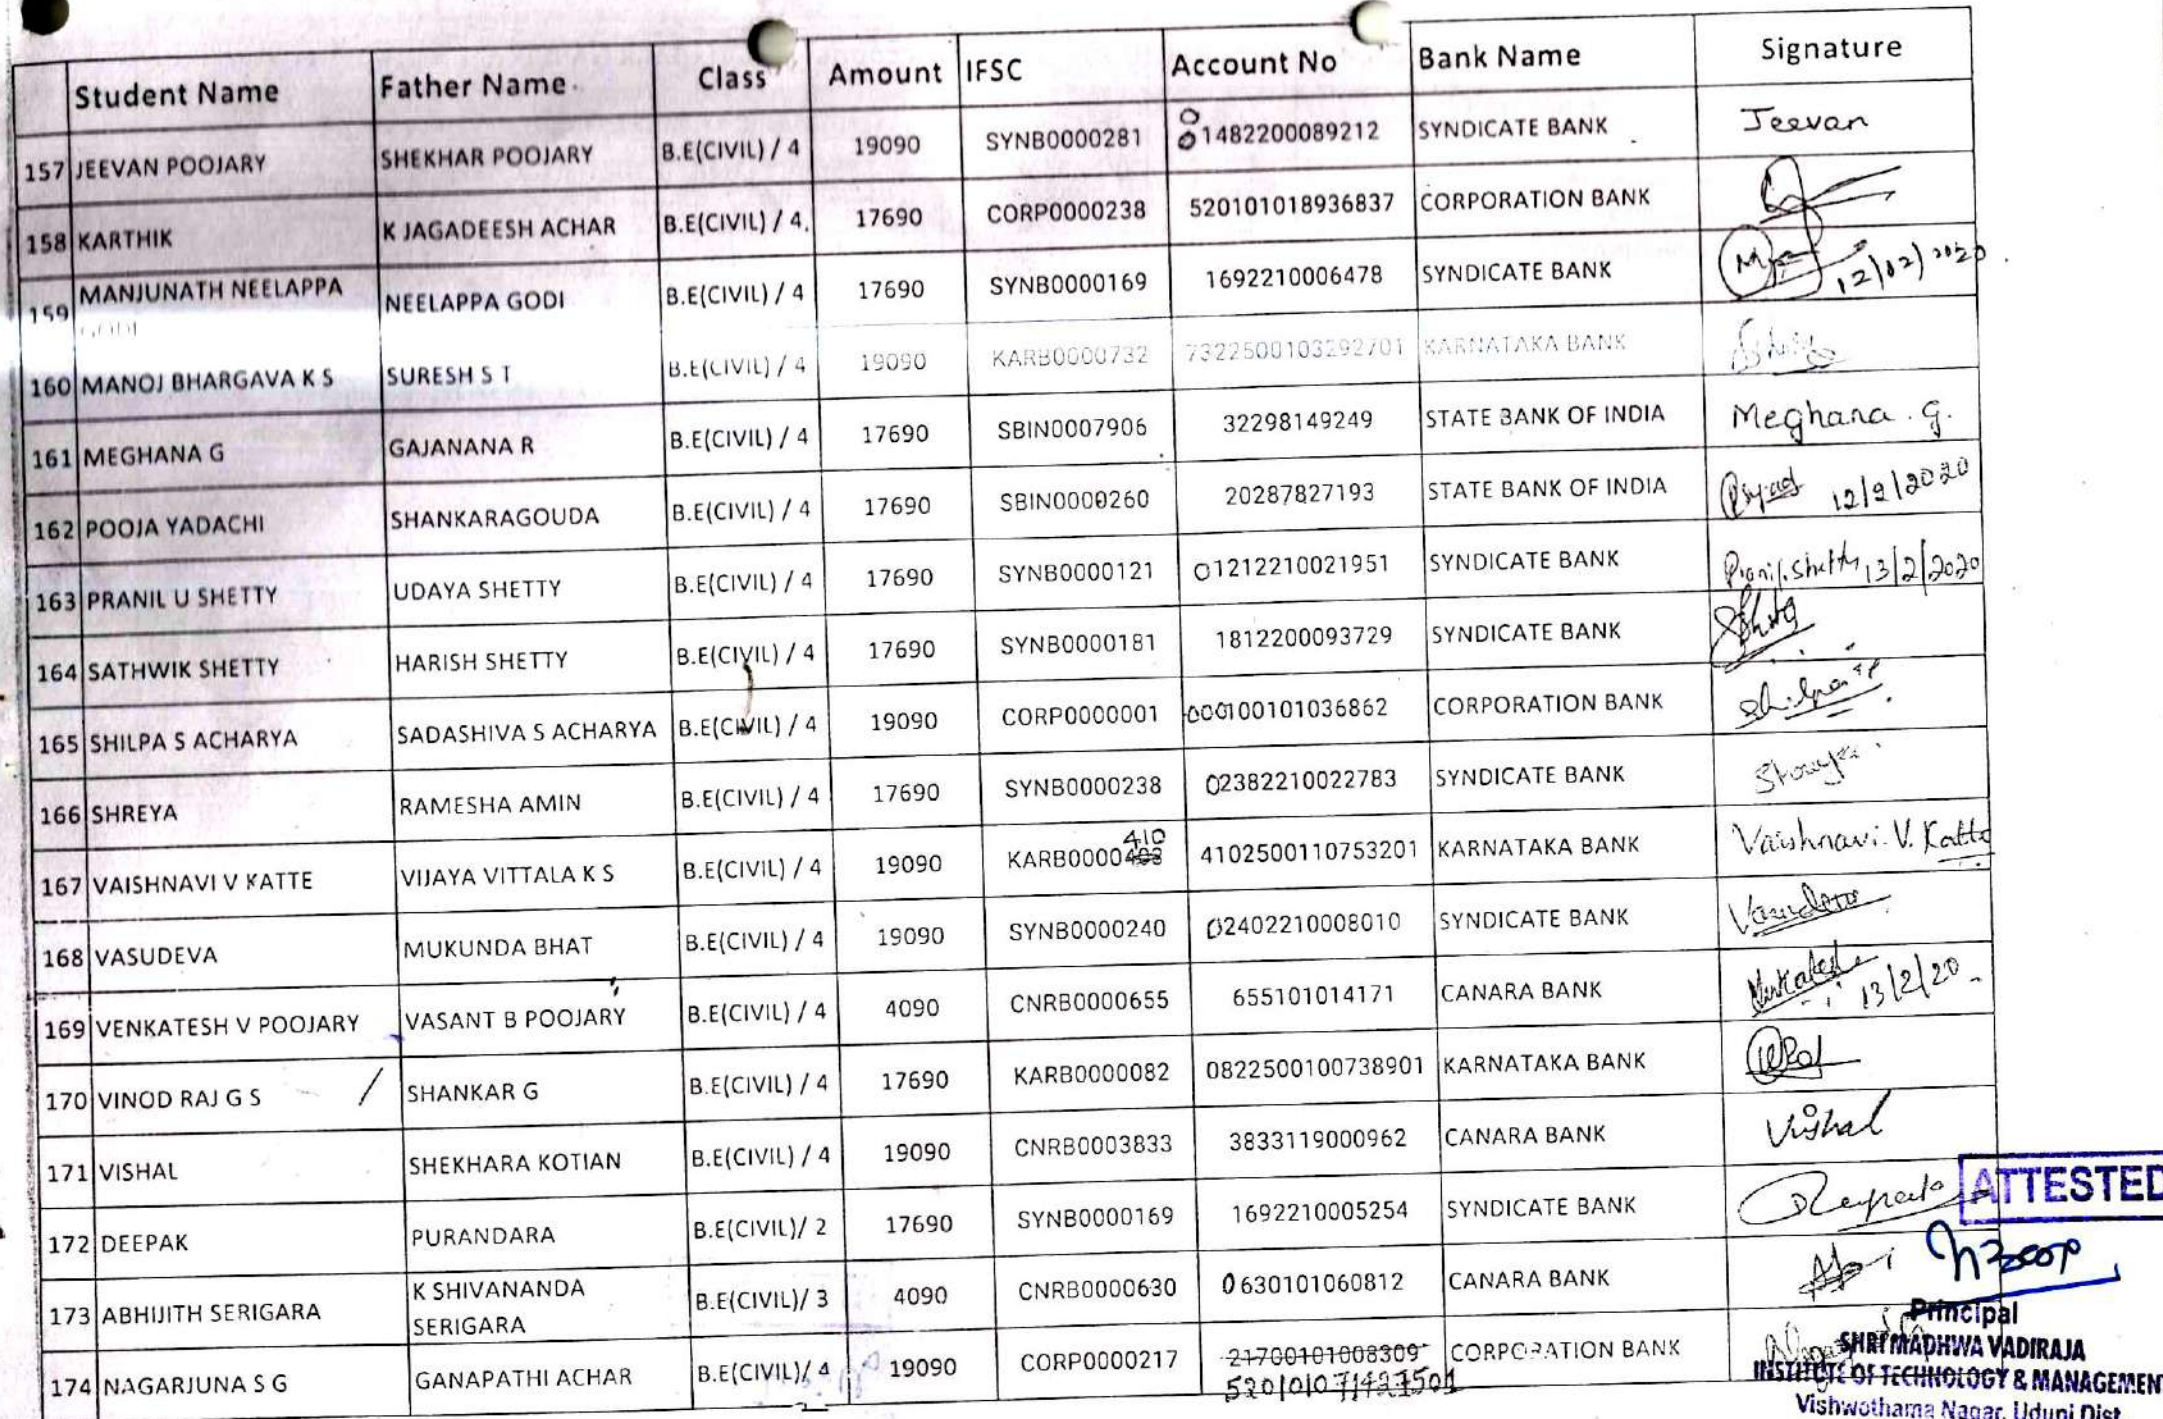 Student Name Father Name. Class Amount IFSC Account No Bank Name Signature
157 JEEVAN POOJARY SHEKHAR POOJARY B.E(CIVIL) / 4 19090 SYNB0000281 01482200089212 SYNDICATE BANK Jeevan
158 KARTHIK K JAGADEESH ACHAR B.E(CIVIL) / 4. 17690 CORP0000238 520101018936837 CORPORATION BANK
159 MANJUNATH NEELAPPA GODI NEELAPPA GODI B.E(CIVIL) / 4 17690 SYNB0000169 1692210006478 SYNDICATE BANK 12/02/2020
160 MANOJ BHARGAVA K S SURESH S T B.E(CIVIL) / 4 19090 KARB0000732 7322500103292701 KARNATAKA BANK
161 MEGHANA G GAJANANA R B.E(CIVIL) / 4 17690 SBIN0007906 32298149249 STATE BANK OF INDIA Meghana . G.
162 POOJA YADACHI SHANKARAGOUDA B.E(CIVIL) / 4 17690 SBIN0000260 20287827193 STATE BANK OF INDIA 12/2/2020
163 PRANIL U SHETTY UDAYA SHETTY B.E(CIVIL) / 4 17690 SYNB0000121 01212210021951 SYNDICATE BANK Pranil.Shetty 13/2/2020
164 SATHWIK SHETTY HARISH SHETTY B.E(CIVIL) / 4 17690 SYNB0000181 1812200093729 SYNDICATE BANK
165 SHILPA S ACHARYA SADASHIVA S ACHARYA B.E(CIVIL) / 4 19090 CORP0000001 000100101036862 CORPORATION BANK
166 SHREYA RAMESHA AMIN B.E(CIVIL) / 4 17690 SYNB0000238 02382210022783 SYNDICATE BANK
410
167 VAISHNAVI V KATTE VIJAYA VITTALA K S B.E(CIVIL) / 4 19090 KARB0000 4102500110753201 KARNATAKA BANK Vaishnavi. V. Katte
168 VASUDEVA MUKUNDA BHAT B.E(CIVIL) / 4 19090 SYNB0000240 02402210008010 SYNDICATE BANK Vasudeva
169 VENKATESH V POOJARY VASANT B POOJARY B.E(CIVIL) / 4 4090 CNRB0000655 655101014171 CANARA BANK Venkatesh 13/2/20
170 VINOD RAJ G S / SHANKAR G B.E(CIVIL) / 4 17690 KARB0000082 0822500100738901 KARNATAKA BANK
171 VISHAL SHEKHARA KOTIAN B.E(CIVIL) / 4 19090 CNRB0003833 3833119000962 CANARA BANK Vishal
172 DEEPAK PURANDARA B.E(CIVIL)/ 2 17690 SYNB0000169 1692210005254 SYNDICATE BANK
ATTESTED
173 ABHIJITH SERIGARA K SHIVANANDA SERIGARA B.E(CIVIL)/ 3 4090 CNRB0000630 0630101060812 CANARA BANK
174 NAGARJUNA S G GANAPATHI ACHAR B.E(CIVIL)/ 4 19090 CORP0000217 21700101008309 CORPORATION BANK
Principal
SHRI MADHWA VADIRAJA
INSTITUTE OF TECHNOLOGY & MANAGEMEN
Vishwothama Nagar, Udupi Dist